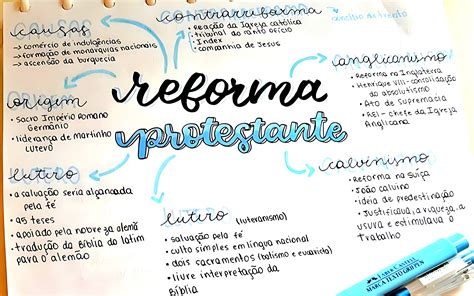 causas
→ comércio de indulgências
→ formação de monarquias nacionais
→ ascensão da burguesia
contrarreforma
• Reação da Igreja católica
• Tribunal do santo ofício
• Index
• companhia de Jesus
concílio de trento
anglicanismo
• Reforma na Inglaterra
• Henrique VIII - consolidação
do absolutismo
• Ato de supremacia
• REI - chefe da Igreja
Anglicana
reforma
protestante
origem
• Sacro Império Romano
Germânico
• liderança de martinho
Lutero
lutero
• a salvação seria alcançada
pela fé
• 95 teses
• apoiado pela nobreza alemã
• tradução da Bíblia do latim
para o alemão
lutero (luteranismo)
• salvação pela fé
• culto simples em língua nacional
• dois sacramentos (batismo e eucaristia)
• livre interpretação da
Bíblia
calvinismo
• Reforma na Suíça
• João calvino
• ideia de predestinação
• Justificava a riqueza, a
usura e estimulava o
Trabalho
FABER-CASTELL
MARCA TEXTO GRIFPEN